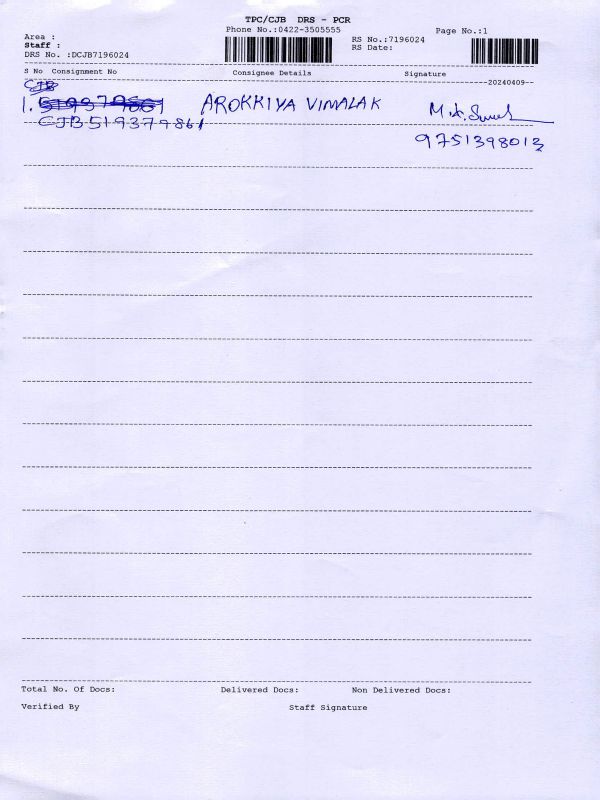 TPC/CJB DRS - PCR
Phone No.:0422-3505555
Page No.:1
Area :
RS No.:7196024
Staff :
RS Date:
DRS No. :DCJB7196024
S No Consignment No Consignee Details Signature
20240409
CJB
1. 519379861 AROKKIYA VIMALAK M.A.
CJB519379861
9751398013
Total No. Of Docs: Delivered Docs: Non Delivered Docs:
Verified By Staff Signature